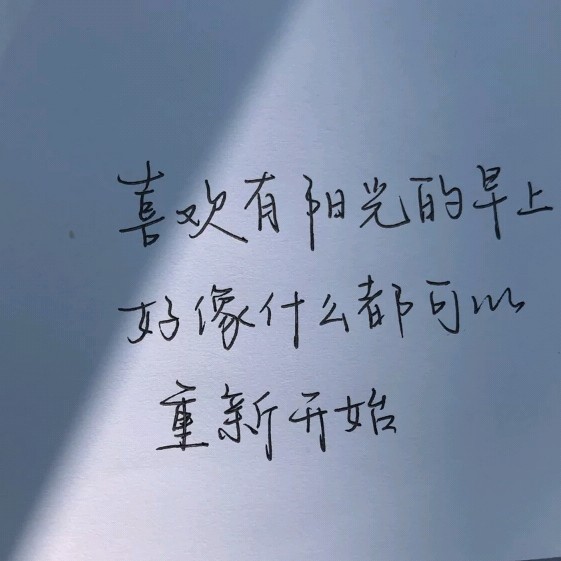 喜欢有阳光的早上
好像什么都可以
重新开始